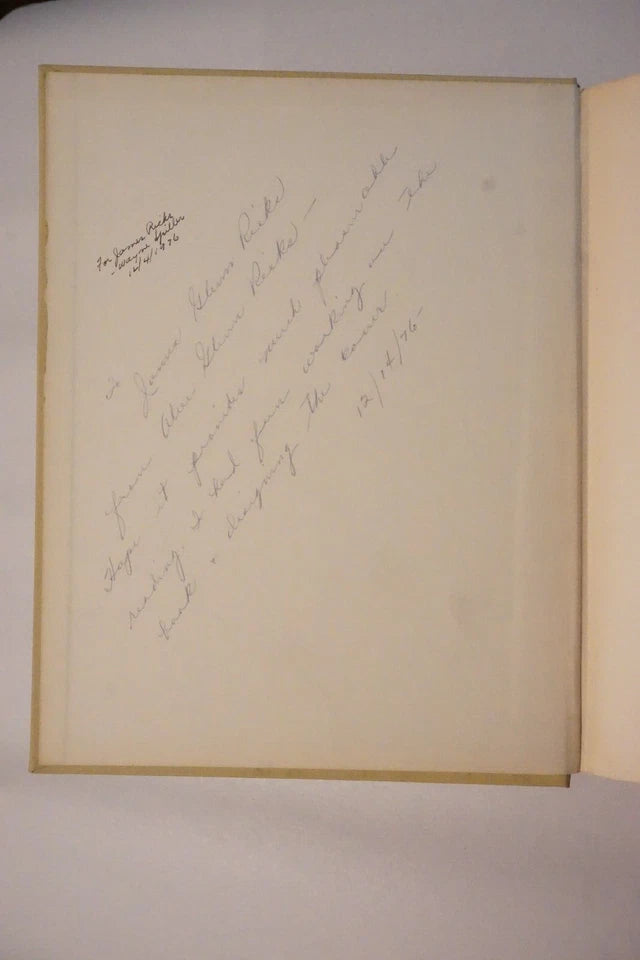 For James Ricks
- Wayne Spiller
12/4/1976
to
James Glenn Ricks
from Alice Glenn Ricks —
Hope it provides much pleasurable
reading. I had fun working on the
book + designing the cover.
12/14/76-